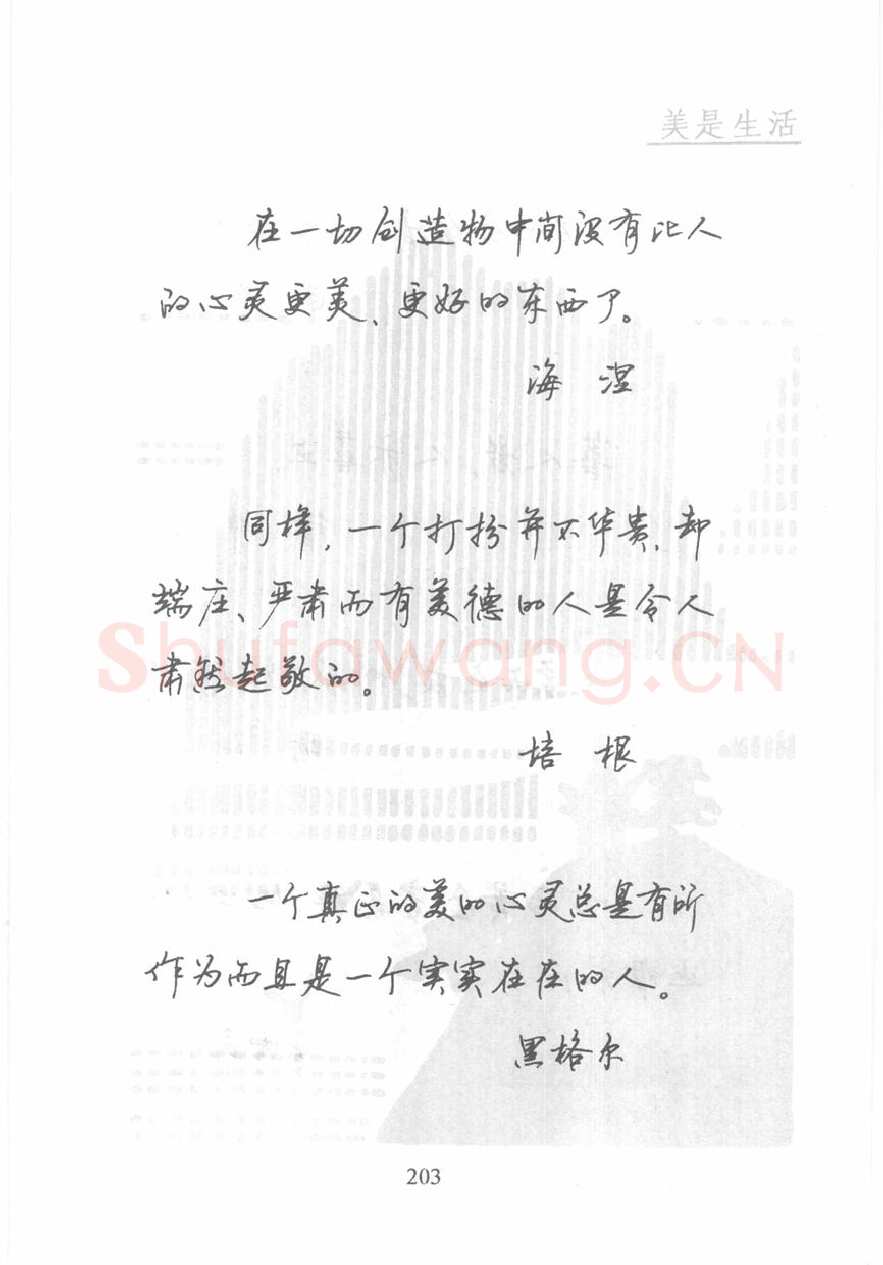 美是生活
在一切创造物中间没有比人
的心灵更美、更好的东西了。
海 涅
同样,一个打扮并不华贵,却
端庄、严肃而有美德的人是令人
肃然起敬的。
Shufawang.CN
培 根
一个真正的美的心灵总是有所
作为而且是一个实实在在的人。
黑格尔
203